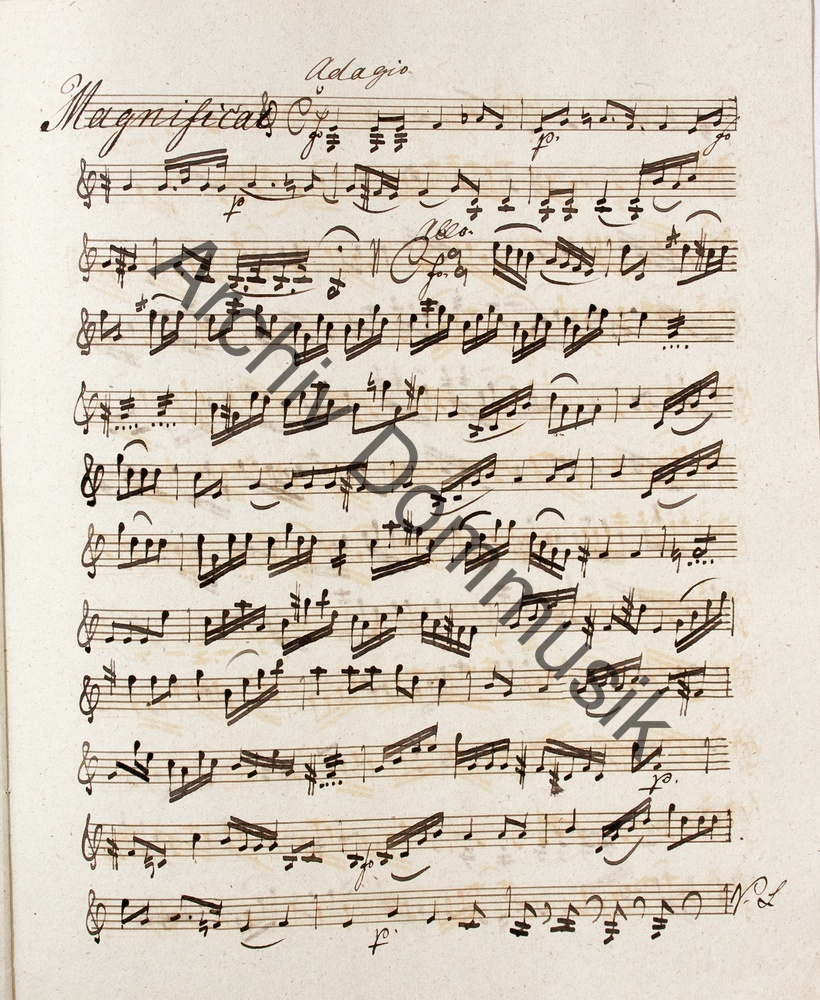 Adagio
Magnificat
fo p. fo
p
Allo.
fo.
p.
fo
p.
Archiv Dommusik